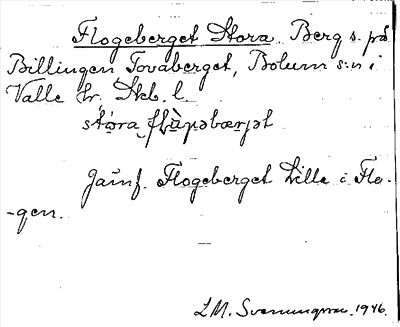 Flogeberget Stora Berg s. på
Billingen Tovaberget, Bolum s:n i
Valle hr. Skb. l.
stóra
Jämf. Flogeberget Lille i Flo-
-gen.
L.M. Svenungsson. 1946.